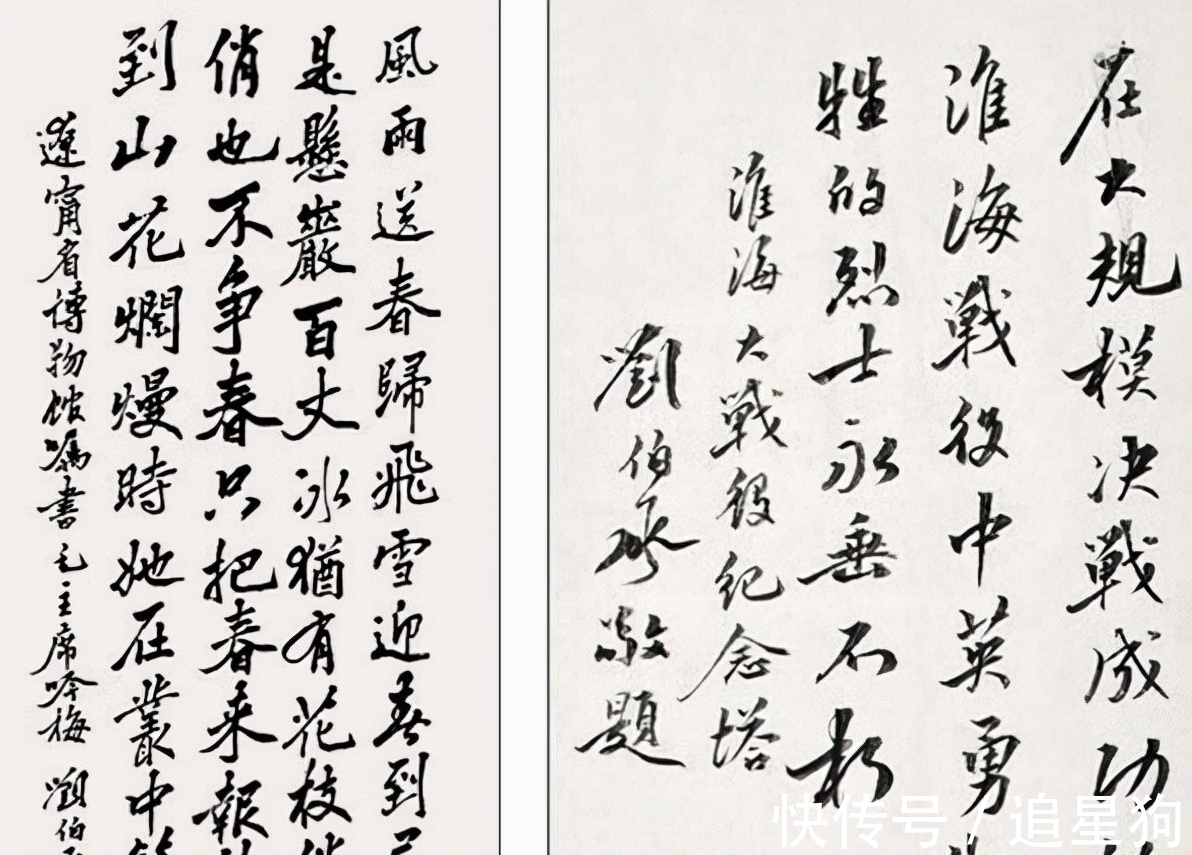 風雨送春歸飛雪迎春到
是懸巖百丈冰猶有花枝
俏也不争春只把春来報
到山花爛熳時她在叢中
遼甯省博物館嘱書毛主席吟梅 劉伯
在大規模决戰成功
淮海戰役中英勇
牲的烈士永垂不朽
淮海大戰役紀念塔
劉伯承敬題
快传号 / 追星狗